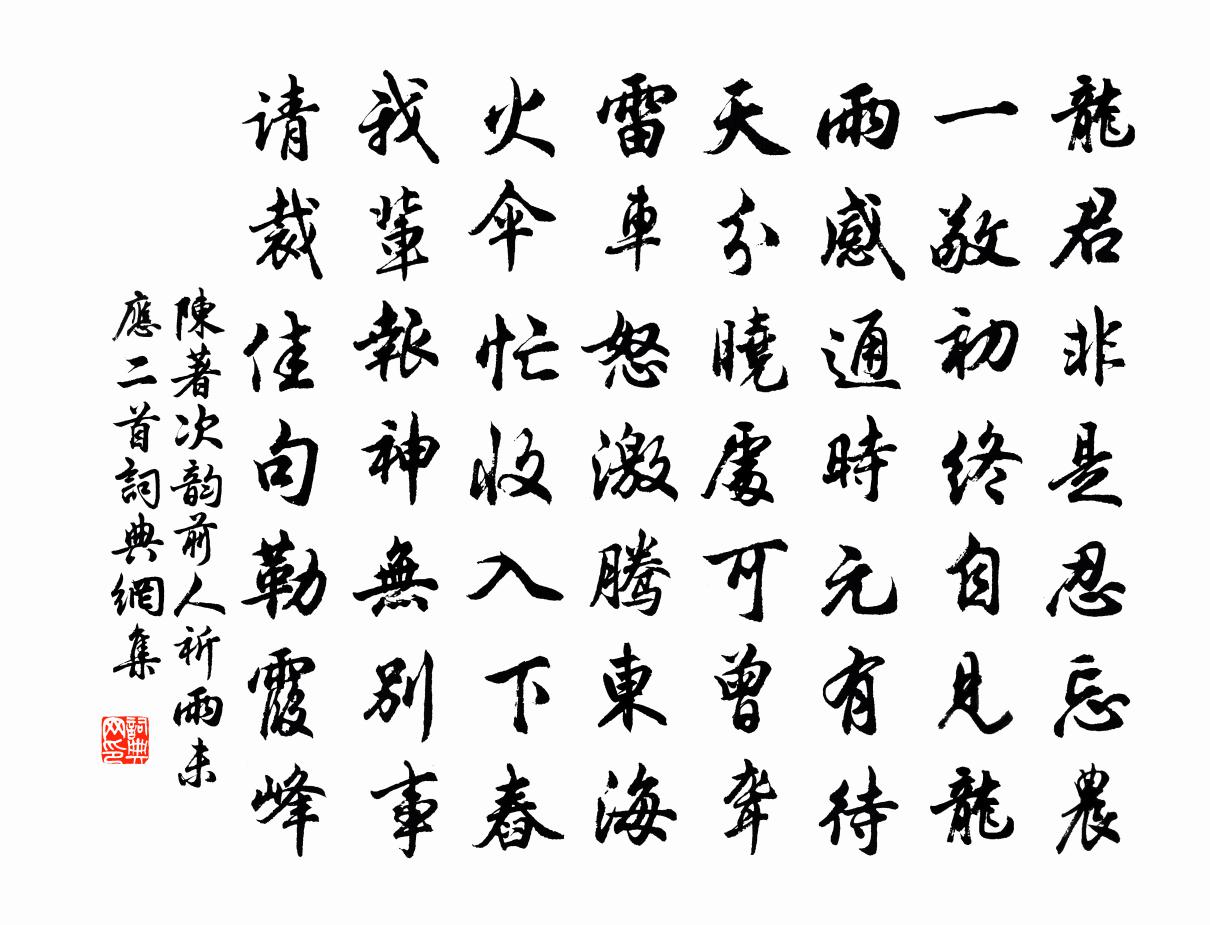 龍君非是忍忘農
一敬初终自見龍
雨感通時元有待
天分曉處可曾聾
雷車怒激騰東海
火伞忙收入下舂
我輩報神無别事
请裁佳句勒霞峰
陳著次韵前人祈雨未
應二首詞典網集
詞典网印